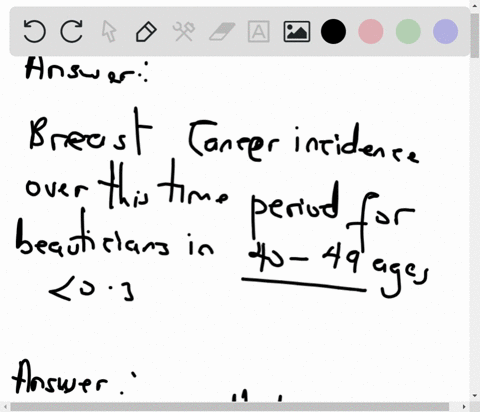 Answer:
Breast Cancer incidence
over this time period for
beauticians in 40-49 ages
<0.3
Answer: